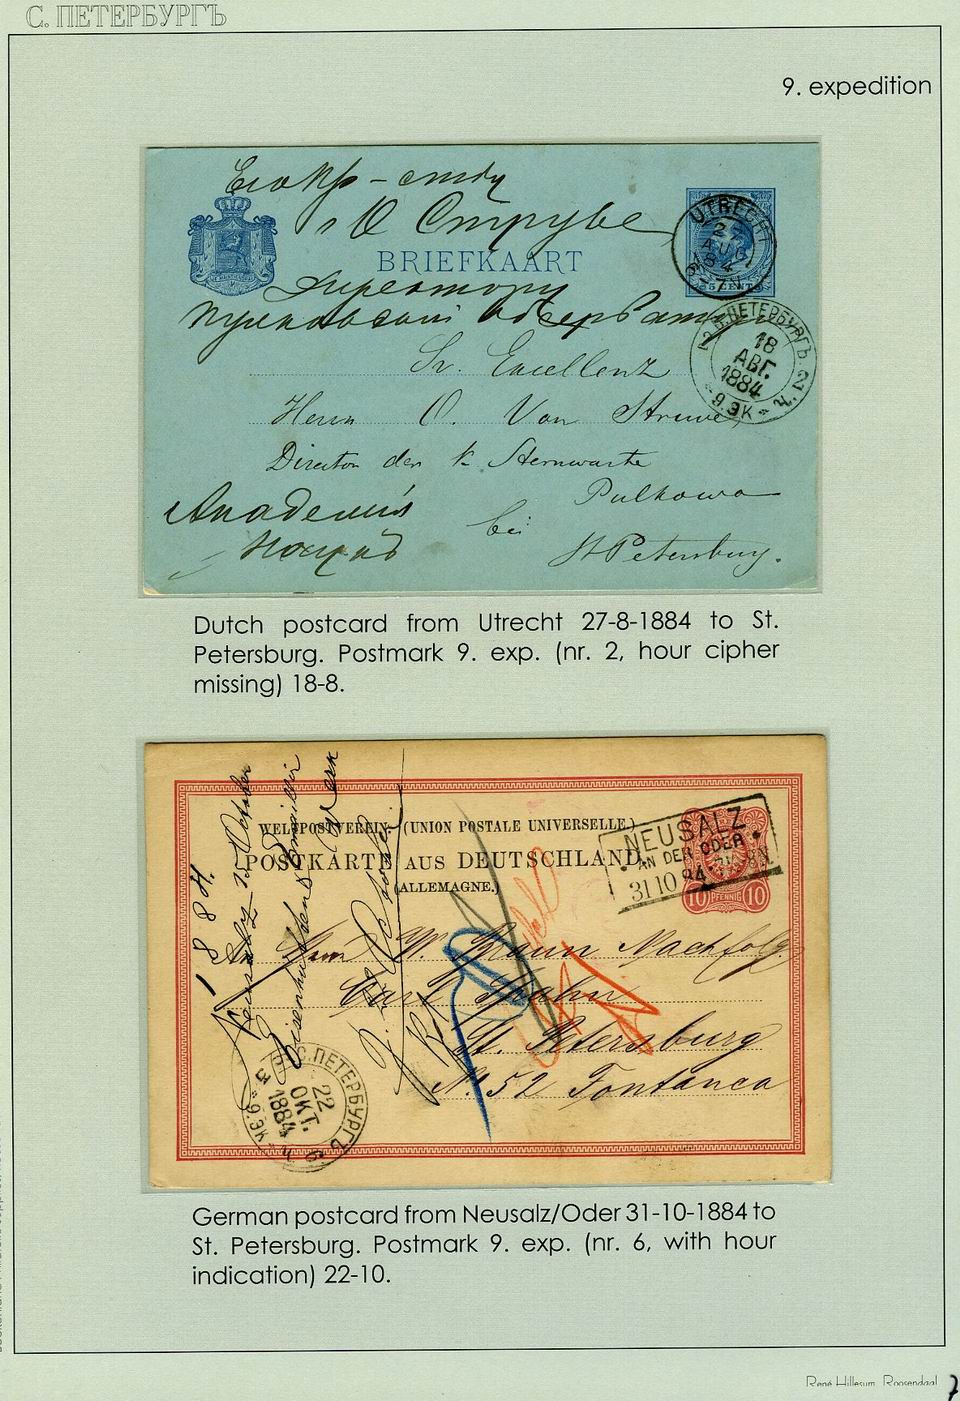 С. ПЕТЕРБУРГЪ
9. expedition
О Струве
BRIEFKAART
UTRECHT
27
AUG
84
5 CENT
Директору
С.ПЕТЕРБУРГЪ. 2
18
АВГ.
1884
9.ЭК
Ч.
Sr. Excellenz
Herrn O. Von Struve,
Director der K. Sternwarte
Pulkowa
bei
St Petersburg.
Dutch postcard from Utrecht 27-8-1884 to St.
Petersburg. Postmark 9. exp. (nr. 2, hour cipher
missing) 18-8.
WELTPOSTVEREIN. (UNION POSTALE UNIVERSELLE.)
POSTKARTE AUS DEUTSCHLAND.
(ALLEMAGNE.)
NEUSALZ
AN DER ODER
31 10 84
8N.
10 PFENNIG 10
1884.
Neusalz October
W. Nachfolg.
Carl
St. Petersburg
No 52 Fontanca
С.ПЕТЕРБУРГЪ
22
ОКТ.
1884
9.ЭК
Ч
6
German postcard from Neusalz/Oder 31-10-1884 to
St. Petersburg. Postmark 9. exp. (nr. 6, with hour
indication) 22-10.
René Hillesum, Roosendaal
7